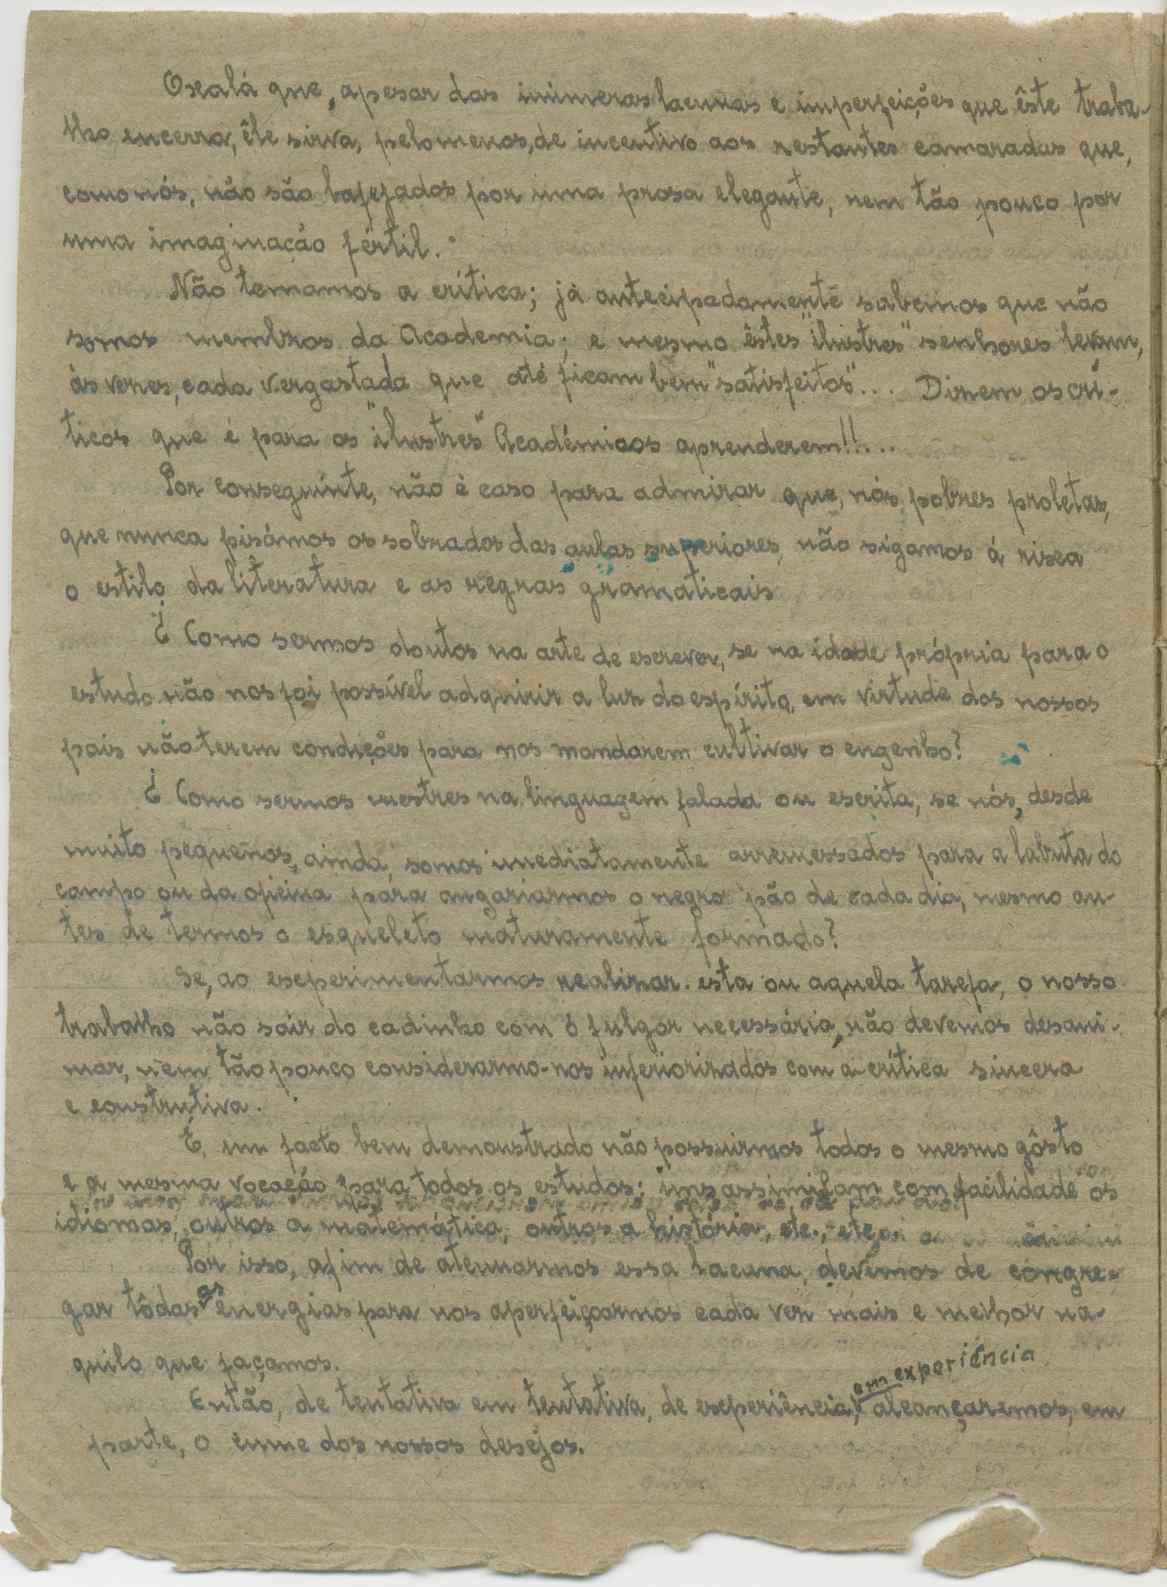 Oxalá que, apesar das inúmeras lacunas e imperfeições que êste traba-
lho encerra, êle sirva, pelo menos, de incentivo aos restantes camaradas que,
como nós, não são bafejados por uma prosa elegante, nem tão pouco por
uma imaginação fértil.
Não temamos a crítica; já antecipadamente sabemos que não
somos membros da Academia; e mesmo êstes "ilustres" senhores levam,
ás vezes, cada vergastada que até ficam bem "satisfeitos"... Dizem os crí-
ticos que é para os "ilustres" Académicos aprenderem!!...
Por conseguinte, não é caso para admirar que, nós, pobres proletas,
que nunca pisámos os sobrados das aulas superiores, não sigamos á risca
o estilo da literatura e as regras gramaticais
¿ Como sermos doutos na arte de escrever, se na idade própria para o
estudo não nos foi possível adquirir a luz do espírito, em virtude dos nossos
pais não terem condições para nos mandarem cultivar o engenho?
¿ Como sermos mestres na linguagem falada ou escrita, se nós, desde
muito pequenos, ainda, somos imediatamente arremessados para a labuta do
campo ou da oficina para angariarmos o negro pão de cada dia, mesmo an-
tes de termos o esqueleto maturamente formado?
Se, ao experimentarmos realizar esta ou aquela tarefa, o nosso
trabalho não sair do cadinho com o fulgor necessário, não devemos desani-
mar, nem tão pouco considerarmo-nos inferiorizados com a crítica sincera
e construtiva.
É, um facto bem demonstrado não possuirmos todos o mesmo gôsto
e a mesma vocação para todos os estudos; uns assimilam com facilidade os
idiomas, outros a matemática, outros a história, etc., etc.
Por isso, afim de atenuarmos essa lacuna, devemos de congre-
gar tôdas as energias para nos aperfeiçoarmos cada vez mais e melhor na-
quilo que façamos.
Então, de tentativa em tentativa, de experiência, em experiência alcançaremos, em
parte, o cume dos nossos desejos.